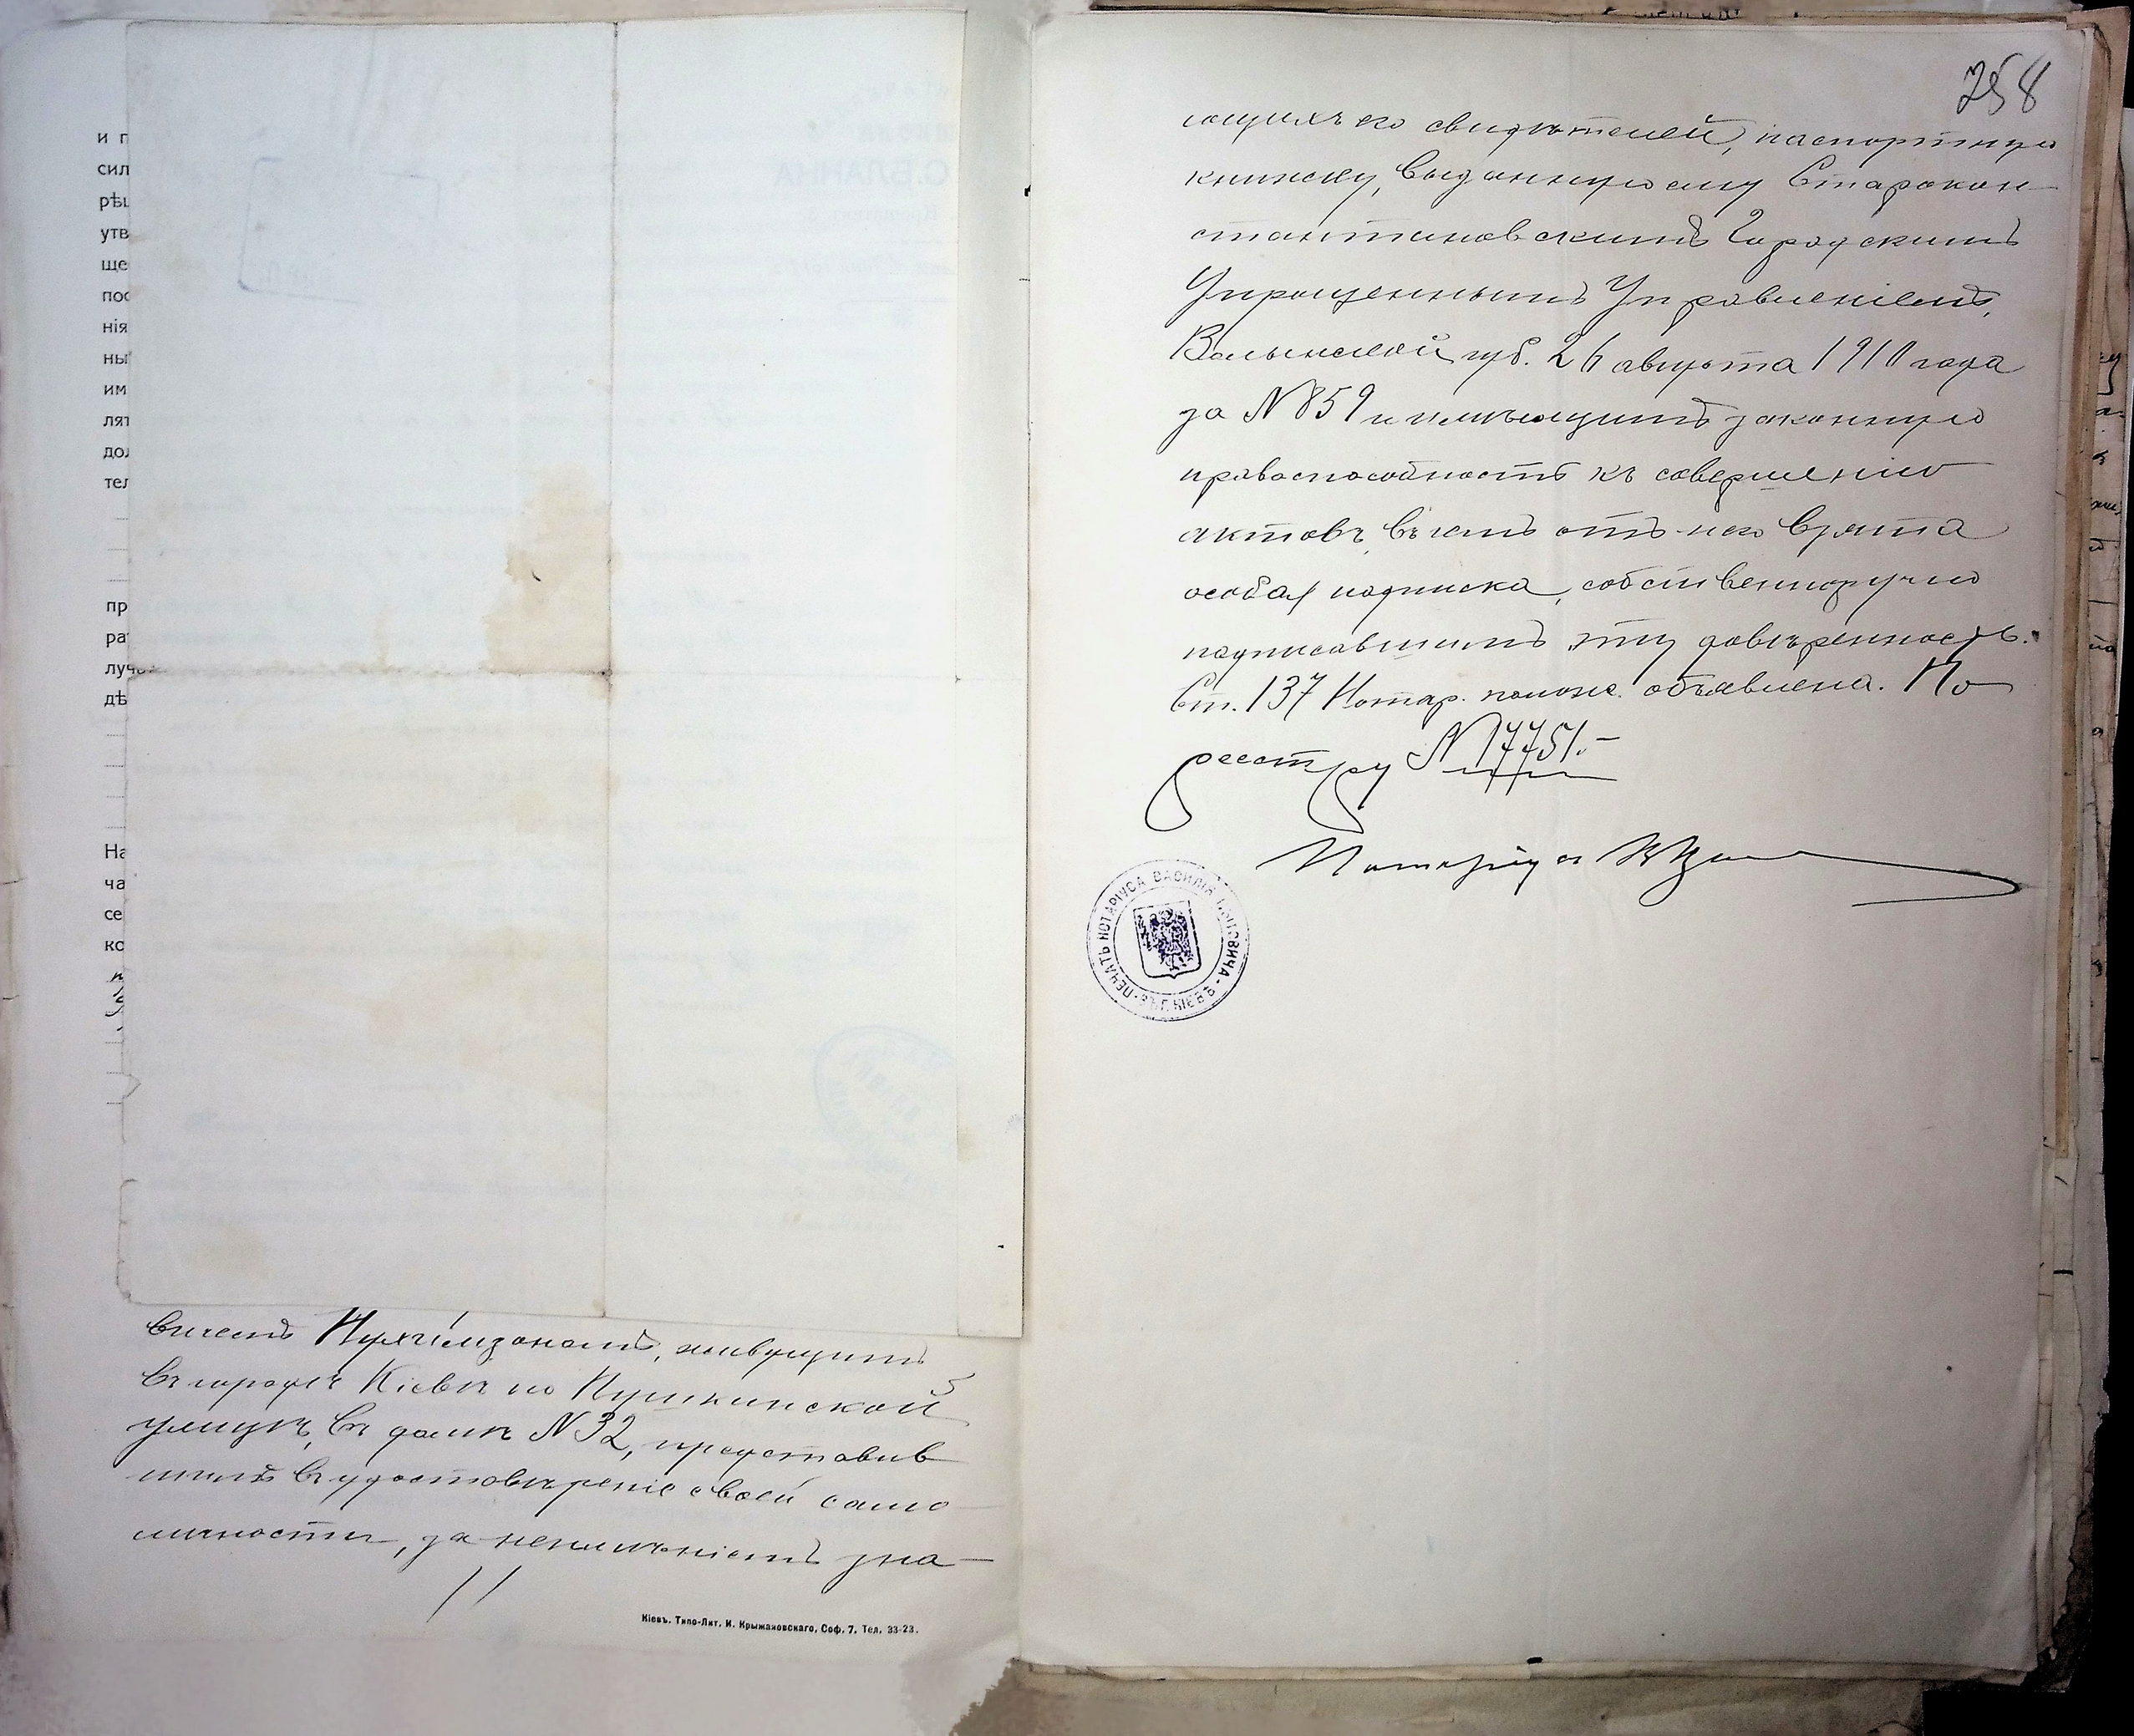 и п
сил
рѣш
утв
ще
пос
нія
ны
им
лят
дол
тел
пр
ра
луч
дѣ
На
ча
се
ко
вичемъ живущимъ
въ городѣ Кіевѣ по Пушкинской
улицѣ, въ домѣ N 32, представив
шимъ въ удостовѣреніе своей само
личности, за неимѣніемъ зна-
Кіевъ. Типо-Лит. И. Крыжановскаго, Соф. 7. Тел. 33-23.
258
ющихъ его свидѣтелей, паспортную
книжку, выданную ему Старокон-
стантиновскимъ Городскимъ
Упрощеннымъ Управленіемъ,
Волынской губ. 26 августа 1910 года
за N 859 и имѣющимъ законную
правоспособность къ совершенію
актовъ, въ чемъ отъ него взята
особая подписка, собственноручно
подписавшимъ эту довѣренность.
Ст. 137 Нотар. полож. объявлена. По
реестру N 17751.-
Нотаріусъ
ПЕЧАТЬ НОТАРІУСА ВАСИЛІЯ ВЪ Г. КІЕВѢ